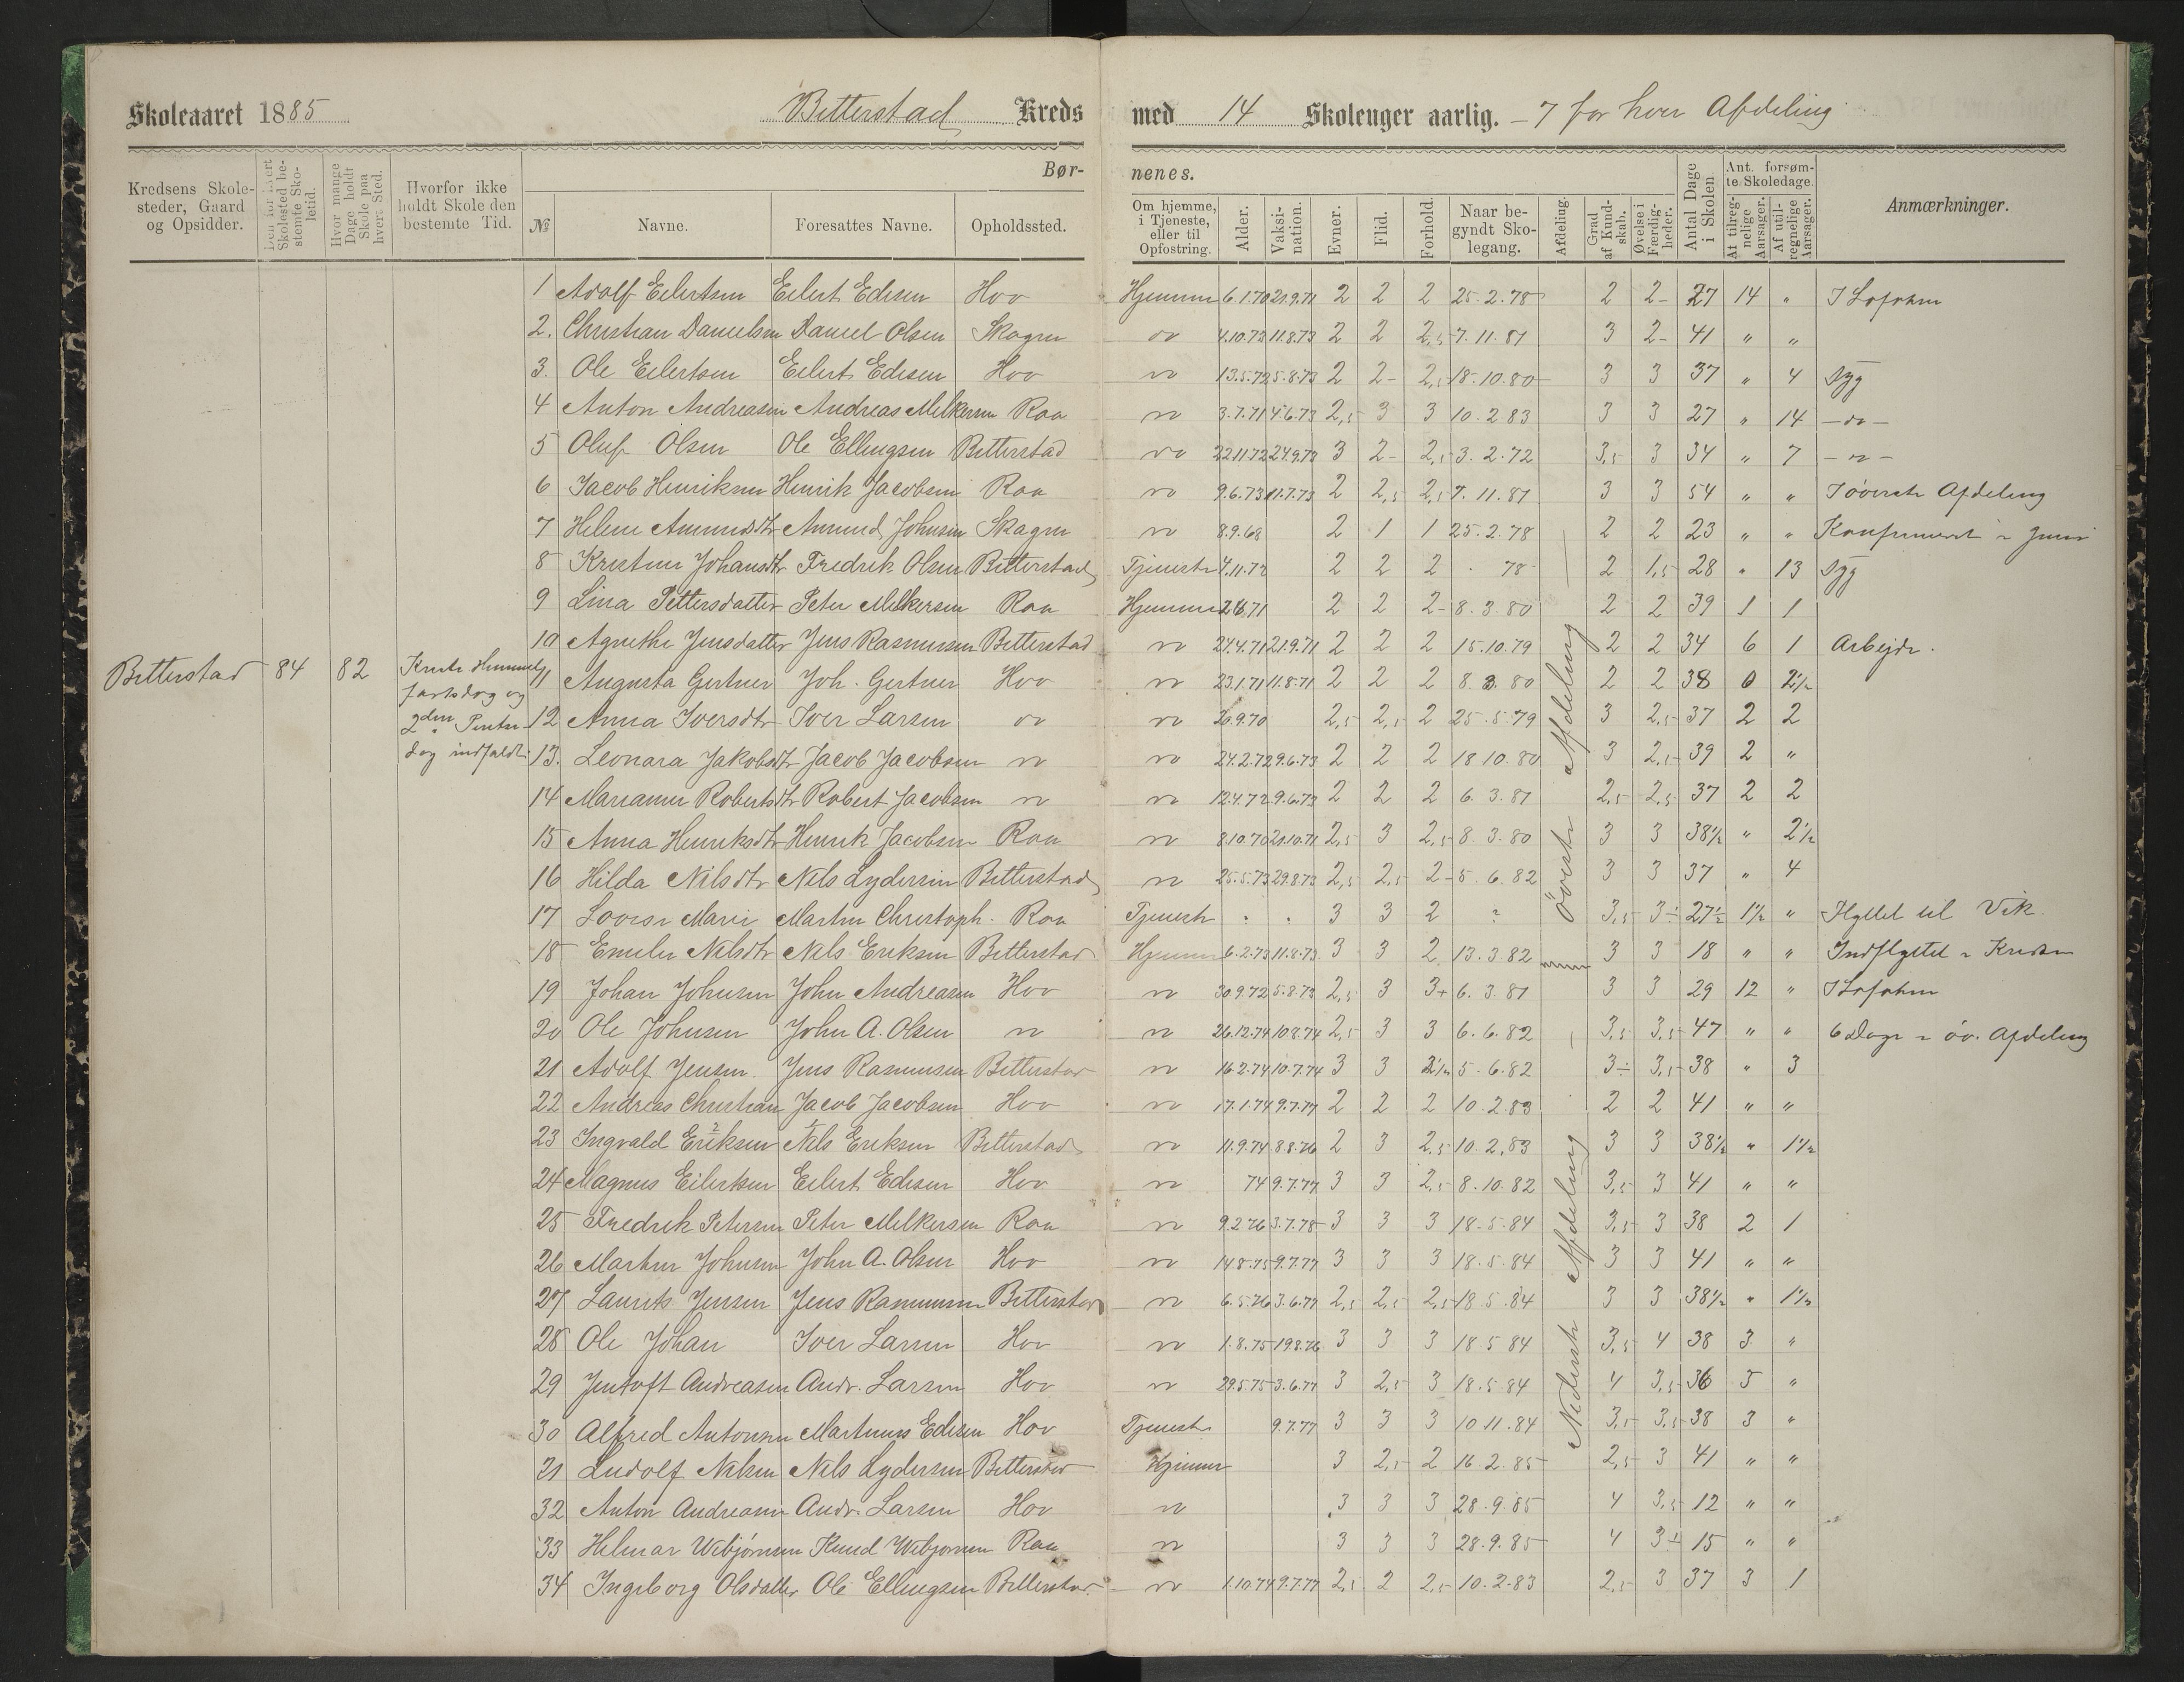 Skoleaaret 1885 Bitterstad Kreds med 14 Skoleuger aarlig. – 7 for hver Afdeling
Kredsens Skolesteder, Gaard og Opsidder.
Den for hvert Skolested bestemte Skoletid.
Hvor mange Dage holdt Skole paa hvert Sted.
Hvorfor ikke holdt Skole den bestemte Tid.
Børnenes.
№
Navne.
Foresattes Navne.
Opholdssted.
Om hjemme, i Tjeneste, eller til Opfostring.
Alder.
Vaksination.
Evner.
Flid.
Forhold.
Naar begyndt Skolegang.
Afdeling.
Grad af Kundskab.
Øvelse i Færdigheder.
Antal Dage i Skolen.
Ant. forsømte Skoledage.
Af tilregnelige Aarsager.
Af utilregnelige Aarsager.
Anmærkninger.
Bitterstad 84 82
2den Pintsedag indfaldt
1 Adolf Eilertsen Eilert Edisen Hov Hjemme 6.1.70 21.9.71 2 2 2 25.2.78 2 2- 27 14 "
2. Christian Danielsen Daniel Olsen Skagen do 4.10.72 11.8.73 2 2 2,5 7.11.81 3 2- 41 " "
3. Ole Eilertsen Eilert Edisen Hov do 13.5.72 5.8.73 2 2- 2,5 18.10.80 3 3 37 " 4 Syg
4 Anton Andreasen Andreas Melkersen Raa do 3.7.71 4.6.73 2,5 3 3 10.2.83 3 3 27 " 14 – do –
5 Oluf Olsen Ole Ellingsen Bitterstad do 22.11.72 24.9.73 3 2- 2,5 3.2.72 3,5 3 34 " 7 – do –
6 Jacob Henriksen Henrik Jacobsen Raa do 9.6.73 11.7.73 2 2,5 2,5 7.11.81 3 3 54 " " I øverste Afdeling
7 Helene Amundsdtr Amund Johnsen Skagen do 8.9.68 2 1 1 25.2.78 2 2 23 " " Konfirmeret i Juni
8 Kristine Johansdtr Fredrik Olsen Bitterstad Tjeneste 4.11.72 2 2 2 78 2 1,5 28 " 13 Syg
9 Lina Pettersdatter Peter Melkersen Raa Hjemme 2.6.71 2 2 2- 8.3.80 2 2 39 1 1
10 Agnethe Jensdatter Jens Rasmussen Bitterstad do 24.4.71 21.9.71 2 2 2 15.10.79 2 2 34 6 1 Arbejde.
11 Augusta Gertner Joh. Gertner Hov do 23.1.71 11.8.71 2 2 2 8.3.80 2 2 38 0 2½
12 Anna Iversdtr Iver Larsen do do 26.9.70 2,5 2,5 2 25.5.79 3 2,5 37 2 2
13. Leonara Jakobsdtr Jacob Jacobsen do do 24.2.72 9.6.73 2 2 2 18.10.80 3 2,5 39 2 "
14 Marianne Robertsdtr Robert Jacobsen do do 12.4.72 9.6.73 2 2 2 6.3.81 2,5 2,5 37 2 2
15 Anna Henriksdtr Henrik Jacobsen Raa do 8.10.70 21.10.71 2,5 3 2,5 8.3.80 3 3 38½ " 2½
16 Hilda Nilsdtr Nils Lydersen Bitterstad do 25.5.73 29.8.73 2,5 2,5 2- 5.6.82 3 3 37 " 4
17 Lovise Marie Martin Christoph. Raa Tjeneste 3 3 2 ? 3,5 3÷ 27½ 1½ " Flyttet til Vik.
18 Emelie Nilsdtr Nils Eriksen Bitterstad Hjemme 6.2.73 11.8.73 3 3 2 13.3.82 3 3 18 " " Indflyttet i Kredsen
Øverste Afdeling
19 Johan Johnsen John Andreasen Hov do 30.9.72 5.8.73 2,5 3 3+ 6.3.81 3 3 29 12 "
20 Ole Johnsen John A. Olsen do do 26.12.74 10.8.74 2,5 3 3 6.6.82 3,5 3,5 47 " " 6 Dage i øv. Afdeling
21 Adolf Jensen Jens Rasmussen Bitterstad do 16.2.74 10.7.74 3 3 2½ 5.6.82 3÷ 3,5 38 " 3
22 Andreas Christian Jacob Jacobsen Hov do 17.1.74 9.7.77 2 2 2 10.2.83 2 2 41 " "
23 Ingvald Eriksen Nils Eriksen Bitterstad do 11.9.74 8.8.76 2 3 2,5 10.2.83 3 3 38½ " 1½
24 Magnus Eilertsen Eilert Edisen Hov do 74 9.7.77 3 3 2,5 8.10.82 3,5 3 41 " "
25 Fredrik Petersen Peter Melkersen Raa do 9.2.76 3.7.78 3 3 3 18.5.84 3,5 3 38 2 1
26 Martin Johnsen John A. Olsen Hov do 14.8.75 9.7.77 3 3 3 18.5.84 3 3 41 " "
27 Laurits Jensen Jens Rasmussen Bitterstad do 6.5.76 3.6.77 2,5 2,5 2,5 18.5.84 3 3 38½ " 1½
28 Ole Johan Iver Larsen Hov do 1.8.75 19.8.76 3 3 3 18.5.84 3,5 4 38 3 "
29 Jentoft Andreasen Andr. Larsen Hov do 29.5.75 3.6.77 3 2,5 3 18.5.84 4 3,5 36 5 "
30 Alfred Antonsen Martinus Edisen Hov Tjeneste 9.7.77 3 3 3 10.11.84 3,5 3,5 38 3 "
31 Ludolf Nilsen Nils Lydersen Bitterstad Hjemme 3 2,5 2 16.2.85 2,5 3 41 " "
32 Anton Andreasen Andr. Larsen Hov do 3 3 3 28.9.85 4 3,5 12 " "
33 Helmar Webjørnsen Knud Webjørnsen Raa do 3 3 3 28.9.85 4 3÷ 15 " "
34 Ingeborg Olsdatter Ole Ellingsen Bitterstad do 1.10.74 9.7.77 2,5 2 2,5 10.2.83 2,5 3 37 3 1
Nederste Afdeling